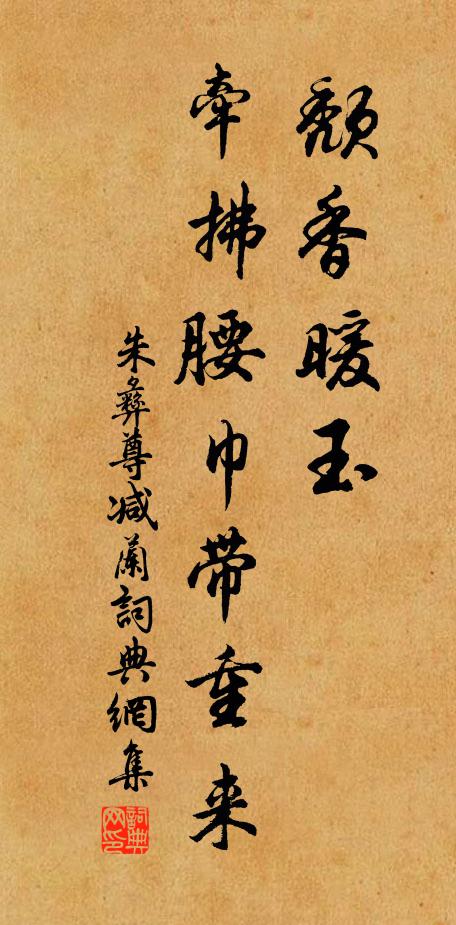 颓香暖玉
牵拂腰巾带重来
朱彝尊减蘭詞典網集
詞典网印